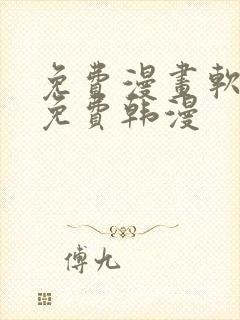 免費漫畫軟
免費韩漫
傅九